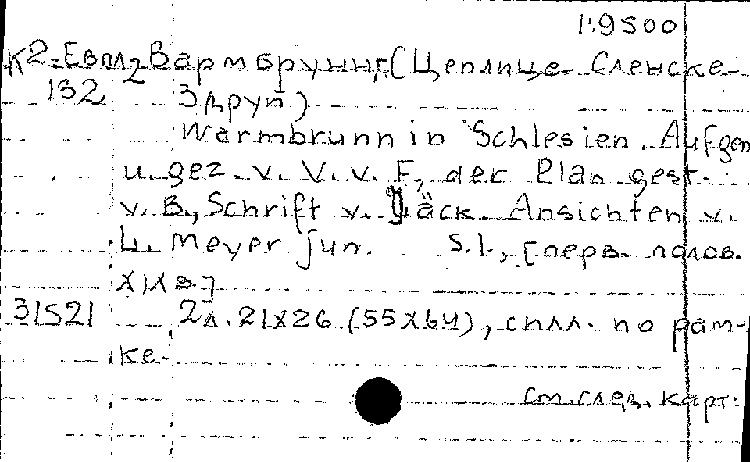 1:9500
К2-Евп2 Вармбрунн (Цеплице Сленске-
132 Здруй)
Warmbrunn in Schlesien. Aufgen
u. gez. v. V. v. F., der Plan gest.
v. B., Schrift v. Jäck. Ansichten v.
L. Meyer jun. S.l., [перв. полов.
XIX в.]
31521 2л. 21x26 (55x64), с илл. по рам-
ке.
См. след. карт.